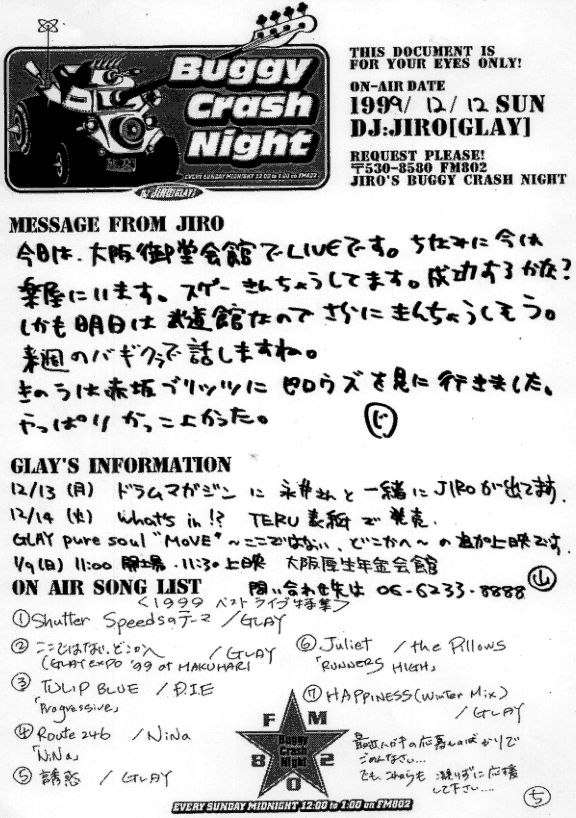 Buggy
Crash
Night
EVERY SUNDAY MIDNIGHT 12:00 to 1:00 on FM802
by JIRO[GLAY]
THIS DOCUMENT IS
FOR YOUR EYES ONLY!
ON-AIR DATE
1999/12/12 SUN
DJ:JIRO[GLAY]
REQUEST PLEASE!
〒530-8580 FM802
JIRO'S BUGGY CRASH NIGHT
MESSAGE FROM JIRO
今日は、大阪御堂会館でLIVEです。ちなみに今は
楽屋にいます。スゲーきんちょうしてます。成功するかな?
しかも明日は武道館なのでさらにきんちょうしそう。
来週のバギクラで話しますね。
きのうは赤坂ブリッツにピロウズを見に行きました。
やっぱりかっこよかった。
ジ
GLAY'S INFORMATION
12/13 (月) ドラムマガジンに永井さんと一緒にJIROが出てます。
12/14 (火) what's in!? TERU表紙で発売.
GLAY pure soul "MOVE" ~ここではない、どこかへ~の追加上映です。
1/9(日) 11:00 開場・11:30上映 大阪厚生年金会館
問い合わせ先は 06-6233-8888
山
ON AIR SONG LIST
<1999 ベストライブ特集>
①Shutter Speedsのテーマ /GLAY
②ここではない、どこかへ /GLAY
(GLAY EXPO '99 at MAKUHARI
③TULIP BLUE /D.I.E
「Progressive」
④Route 246 /NiNa
「NiNa」
⑤誘惑 /GLAY
⑥Juliet /the Pillows
「RUNNERS HIGH」
⑦HAPPINESS(Winter Mix)
/GLAY
最近ハガキの応募ものばかりで
ごめんなさい…
でも、これからも 懲りずに応援
して下さい…
ち
FM
802
Buggy
Crash
Night
EVERY SUNDAY MIDNIGHT 12:00 to 1:00 on FM802